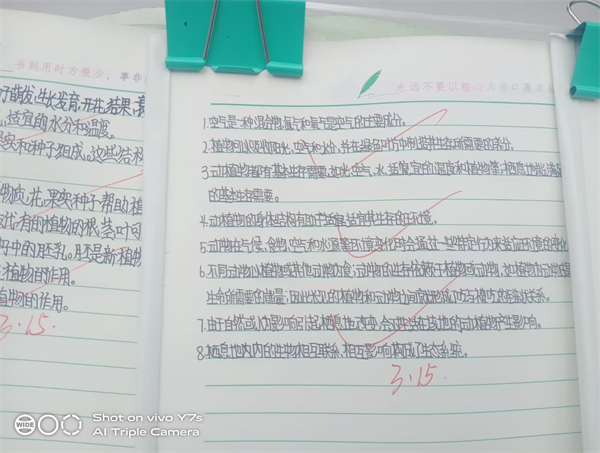 书到用时方恨少，事非
永远不要以粗心为借口原谅自
子萌发出芽发育、开花、结果、
适宜的水分和温度。
果实和种子组成。这些结构
物质，花、果实、种子帮助植物
有的植物的根、茎、叶可
中的胚乳。胚是新植物
植物的作用。
植物的作用。
3.15.
1.空气是一种混合物，氮气和氧气是空气的主要成分。
2.植物可以利用阳光、空气和水分，并在绿色叶片中制造其生存所需要的养分。
3.动植物都有基本生存需要，如空气、水、适宜的温度和植物等；栖息地能满足
的基本生存需要。
4.动植物的身体结构有助于适应其生存的环境。
5.动物在气候、食物、空气和水源等环境变化时会通过一些特定行为来适应环境的变化
6.不同动物以植物或其他动物为食；动物的生存依赖于植物或动物，如植物为动物提
生命所需要的能量；因此水边的植物和动物之间
7.由于自然或人为影响引起栖息地改变，会对生活在该地的动植物产生影响。
8.栖息地内的生物相互联系、相互影响构成了生态系统。
3.15.
WIDE
Shot on vivo Y7s
AI Triple Camera